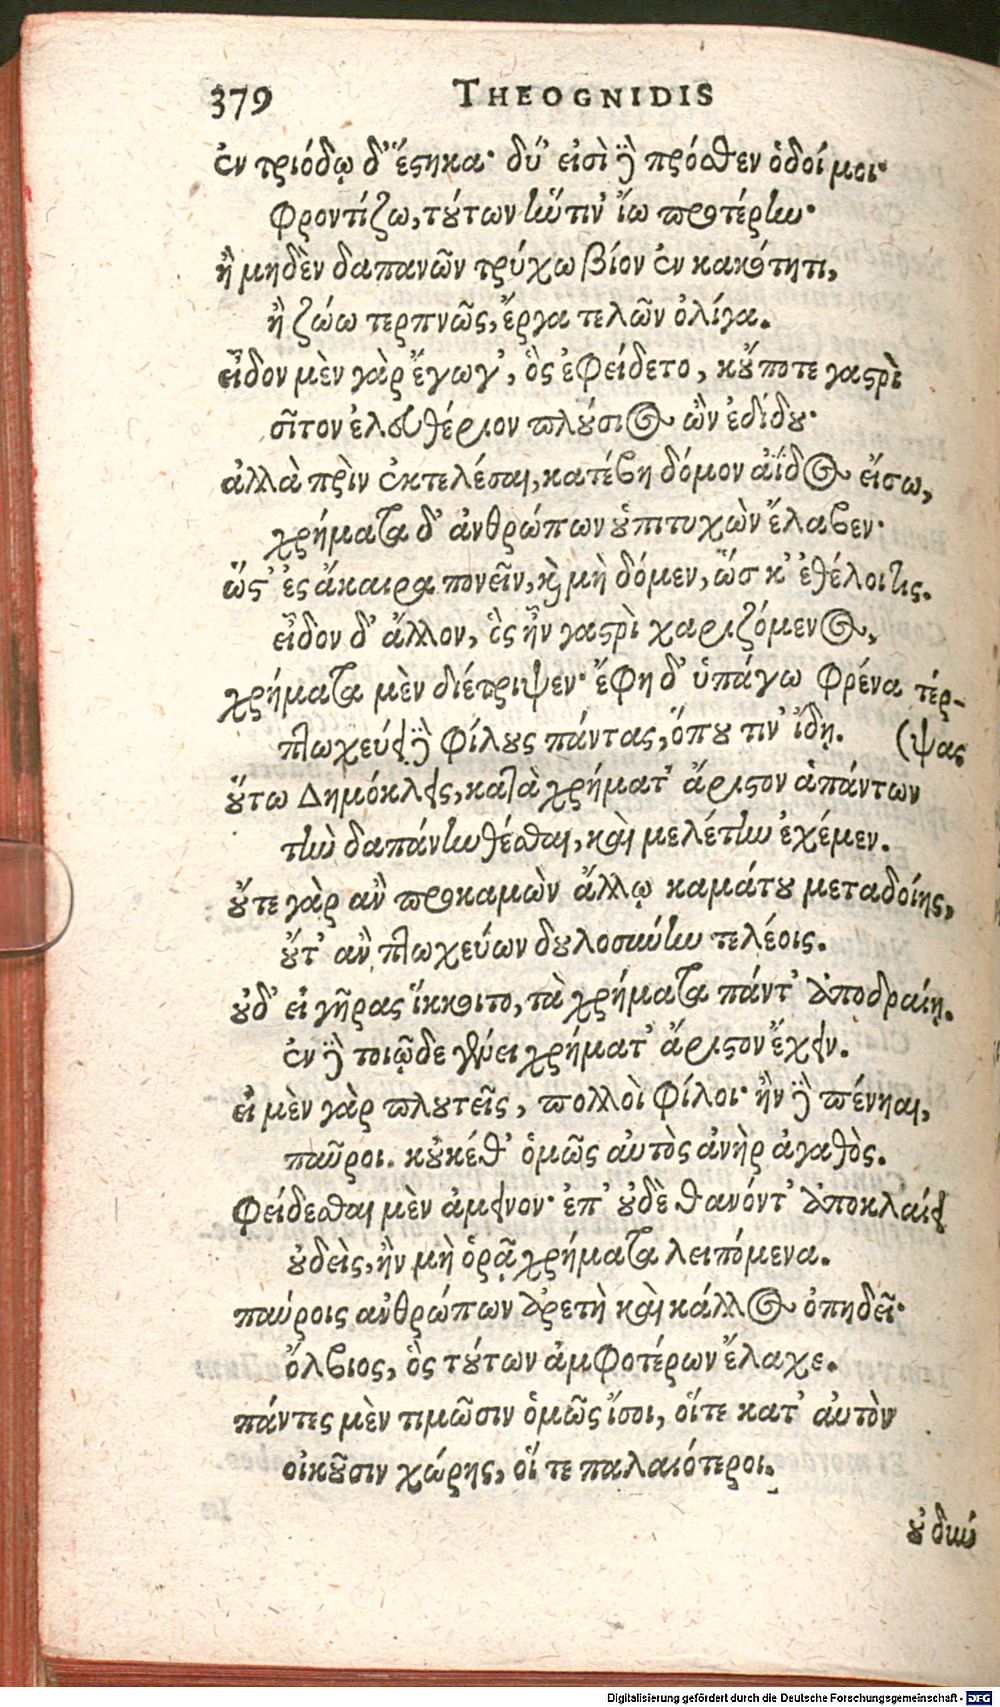 379 THEOGNIDIS
ἐν τριόδῳ δ' ἕστηκα· δύ' εἰσὶ τὸ πρόσθεν ὁδοί μοι·
Φροντίζω, τούτων ἥντιν' ἴω προτέρην·
ἢ μηδὲν δαπανῶν τρύχω βίον ἐν κακότητι,
ἢ ζώω τερπνῶς, ἔργα τελῶν ὀλίγα.
εἶδον μὲν γὰρ ἔγωγ', ὃς ἐφείδετο, κοὔποτε γαστρὶ
σῖτον ἐλευθέριον πλούσιος ὢν ἐδίδου·
ἀλλὰ πρὶν ἐκτελέσαι, κατέβη δόμον ἄϊδος εἴσω,
χρήματα δ' ἀνθρώπων οὑπιτυχὼν ἔλαβεν·
ὥστ' ἐς ἄκαιρα πονεῖν, καὶ μὴ δόμεν, ᾧσ κ' ἐθέλοι τις.
εἶδον δ' ἄλλον, ὃς ἦν γαστρὶ χαριζόμενος,
χρήματα μὲν διέτριψεν· ἔφη δ' ὑπάγω φρένα τέρ-
πτωχεύει τὸ φίλους πάντας, ὅπου τιν' ἴδῃ. (ψας
οὕτω Δημόκλεις, κατὰ χρήματ' ἄριστον ἁπάντων
τὴν δαπάνην θέσθαι, καὶ μελέτην ἐχέμεν.
οὔτε γὰρ ἂν προκαμὼν ἄλλῳ καμάτου μεταδοίης,
οὔτ' ἂν πτωχεύων δουλοσύνην τελέοις.
οὐδ' εἰ γῆρας ἵκοιτο, τὰ χρήματα πάντ' ἀποδραίη.
ἐν τὸ τοιῷδε γένει χρήματ' ἄριστον ἔχειν.
εἰ μὲν γὰρ πλουτεῖς, πολλοὶ φίλοι· ἢν τὸ πένηαι,
παῦροι. κοὐκέθ' ὁμῶς αὐτὸς ἀνὴρ ἀγαθὸς.
Φείδεσθαι μὲν ἄμεινον· ἐπ' οὐδὲ θανόντ' ἀποκλαίει
οὐδεὶς, ἢν μὴ ὁρᾷ χρήματα λειπόμενα.
παύροις ἀνθρώπων ἀρετὴ καὶ κάλλος ὀπηδεῖ·
ὄλβιος, ὃς τούτων ἀμφοτέρων ἔλαχε.
πάντες μὲν τιμῶσιν ὁμῶς ἴσοι, οἵτε κατ' αὐτὸν
οἰκοῦσιν χώρης, οἵ τε παλαιότεροι.
οὐ δύω
Digitalisierung gefördert durch die Deutsche Forschungsgemeinschaft - DFG